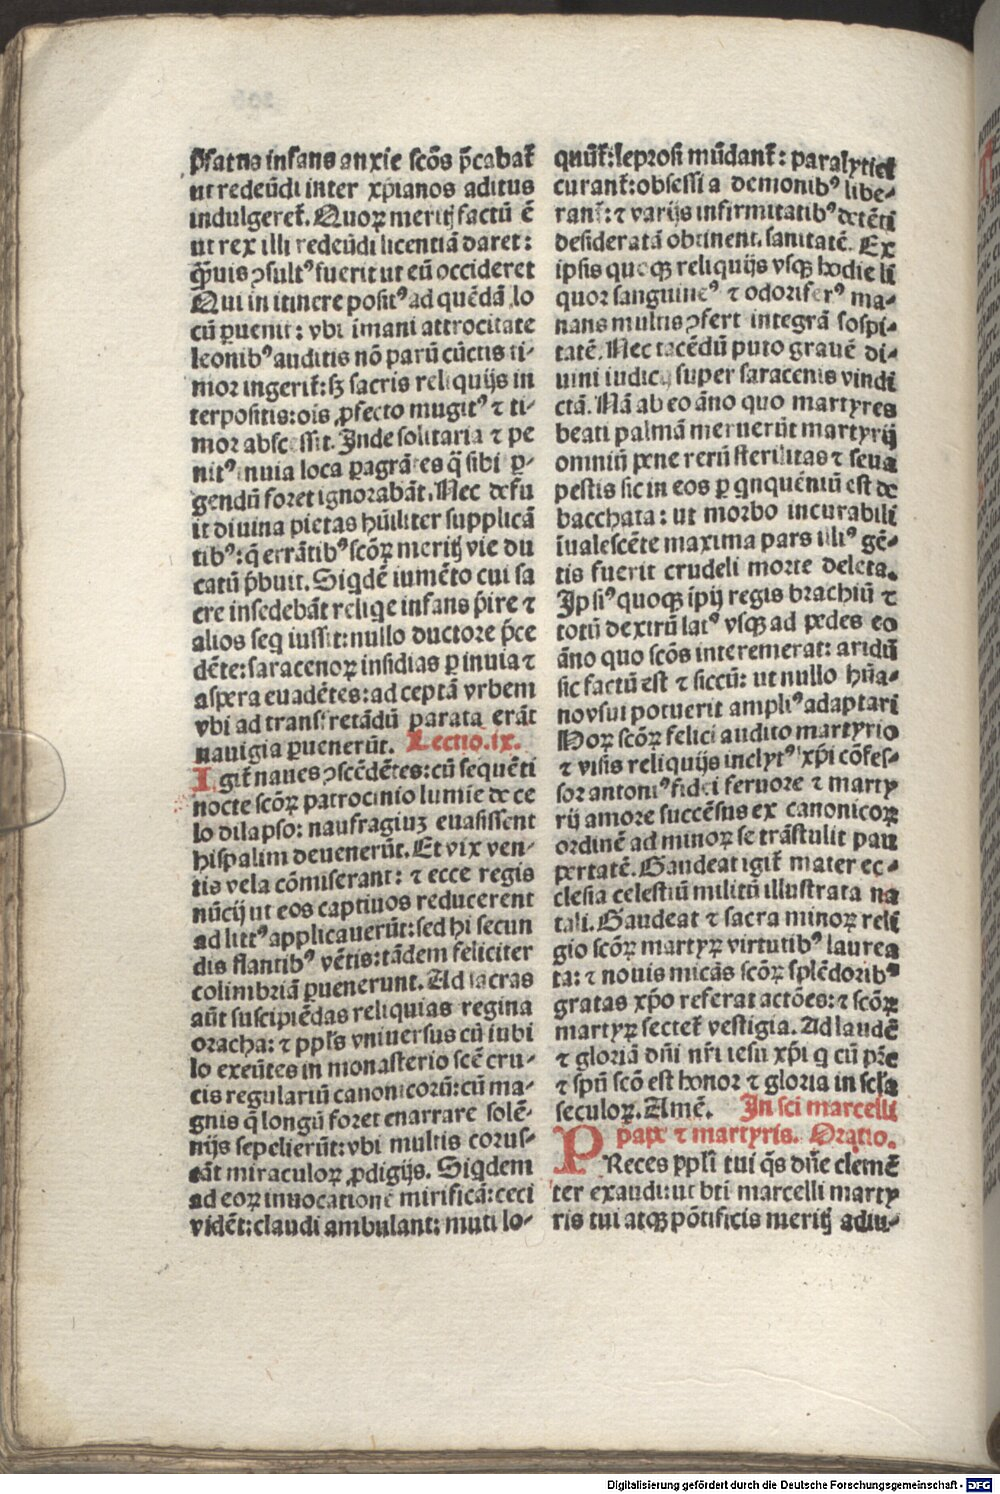 p̃satus infans anxie scõs p̃cabat̃
ut redeũdi inter xp̃ianos aditus
indulgeret̃. Quoꝝ meritĳ factũ ẽ
ut rex illi redeũdi licentiã daret:
q̃uis ꝯsultꝰ fuerit ut eũ occideret
Qui in itinere positꝰ ad quẽdã lo
cũ ꝑuenit: vbi ĩmani attrocitate
leonibꝰ auditis nõ parũ cũctis ti-
mor ingerit̃: sꝫ sacris reliquĳs in
terpositis: oĩs ꝓfecto mugitꝰ ⁊ ti-
mor abscessit. Inde solitaria ⁊ pe
nitꝰ inuia loca ꝑagrãtes q̃ sibi ꝑ-
gendũ foret ignorabãt. Nec defu
it diuina pietas hũiliter supplicã
tibꝰ: q̃ errãtibꝰ scõꝝ meritĳ vie du
catũ p̃buit. Siqdẽ iumẽto cui sa
cre insedebãt reliqe infans p̃ire ⁊
alios seq iussit: nullo ductore p̃ce
dẽte: saracenoꝝ insidias ꝑ inuia ⁊
aspera euadẽtes: ad ceptã vrbem
vbi ad transfretãdũ parata erãt
nauigia ꝑuenerũt. Lectio.ix.
Igit̃ naues ꝯscẽdẽtes: cũ sequẽti
nocte scõꝝ patrocinio lumĩe de ce
lo dilapso: naufragiuꝫ euasissent
hispalim deuenerũt. Et vix ven-
tis vela cõmiserant: ⁊ ecce regis
nũcĳ ut eos captiuos reducerent
ad littꝰ applicauerũt: sed hi secun
dis flantibꝰ vẽtis: tãdem feliciter
colimbriã ꝑuenerunt. Ad sacras
aũt suscipiẽdas reliquias regina
oracha: ⁊ pp̃ls vniuersus cũ iubi
lo exeũtes in monasterio scẽ cru-
cis regulariũ canonicorũ: cũ ma-
gnis q̃ longũ foret enarrare solẽ-
nĳs sepelierũt: vbi multis corus-
cãt miraculoꝝ ꝓdigĳs. Siqdem
ad eoꝝ inuocatione mirificã: ceci
vidẽt: claudi ambulant: muti lo-
quũt̃: leprosi mũdant̃: paralytici
curant̃: obsessi a demonibꝰ libe-
rant̃: ⁊ varĳs infirmitatibꝰ detẽti
desideratã obtinent. sanitatẽ. Ex
ipsis quoqꝫ reliquĳs vsqꝫ hodie li
quor sanguineꝰ ⁊ odoriferꝰ ma-
nans multis ꝯfert integrã sospi-
tatẽ. Nec tacẽdũ puto grauẽ di-
uini iudicĳ super saracenis vindi
ctã. Nã ab eo ãno quo martyres
beati palmã meruerũt martyrĳ
omniũ pene rerũ sterilitas ⁊ seua
pestis sic in eos ꝑ qnquẽniũ est de
bacchata: ut morbo incurabili
ĩualescẽte maxima pars illiꝰ gẽ-
tis fuerit crudeli morte deleta.
Ipsiꝰ quoqꝫ ĩpĳ regis brachiũ ⁊
totũ dextrũ latꝰ vsqꝫ ad pedes eo
ãno quo scõs interemerat: aridũ
sic factũ est ⁊ siccũ: ut nullo hũa-
no vsui potuerit ampliꝰ adaptari
Hoꝝ scõꝝ felici audito martyrio
⁊ visis reliquĳs inclytꝰ xp̃i cõfes-
sor antoniꝰ fidei feruore ⁊ marty
rĳ amore succẽsus ex canonicoꝝ
ordinẽ ad minoꝝ se trãstulit pau
pertatẽ. Gaudeat igit̃ mater ec-
clesia celestiũ militũ illustrata na
tali. Gaudeat ⁊ sacra minoꝝ reli
gio scõꝝ martyꝝ virtutibꝰ laurea
ta: ⁊ nouis micãs scõꝝ splẽdoribꝰ
gratas xp̃o referat actões: ⁊ scõꝝ
martyꝝ sectet̃ vestigia. Ad laudẽ
⁊ gloriã dñi nr̃i iesu xp̃i q cũ pr̃e
⁊ spũ scõ est honor ⁊ gloria in scl̃a
seculoꝝ. Amẽ. In sci marcelli
pape ⁊ martyris. Oratio.
PReces pp̃li tui q̃s dñe clemẽ
ter exaudi: ut bt̃i marcelli marty
ris tui atqꝫ põtificis meritĳ adiu-
Digitalisierung gefördert durch die Deutsche Forschungsgemeinschaft - DFG